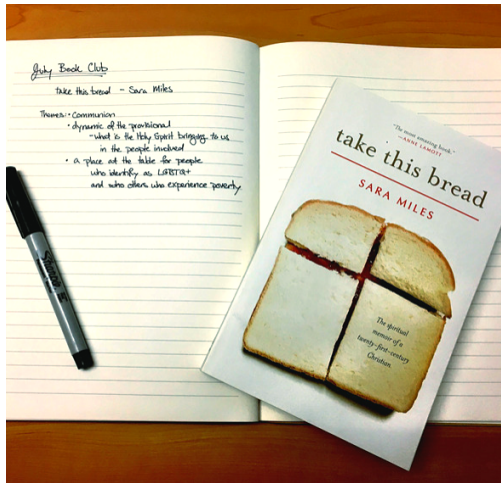 July Book Club
take this bread - Sara Miles
Themes: - Communion
• dynamic of the provisional
- what is the Holy Spirit bringing to us
in the people involved
• a place at the table for people
who identify as LGBTQ+
and who others who experience poverty
SHARPIE
"The most amazing book."
—ANNE LAMOTT
take this bread
SARA MILES
The spiritual
memoir of a
twenty-first-century
Christian